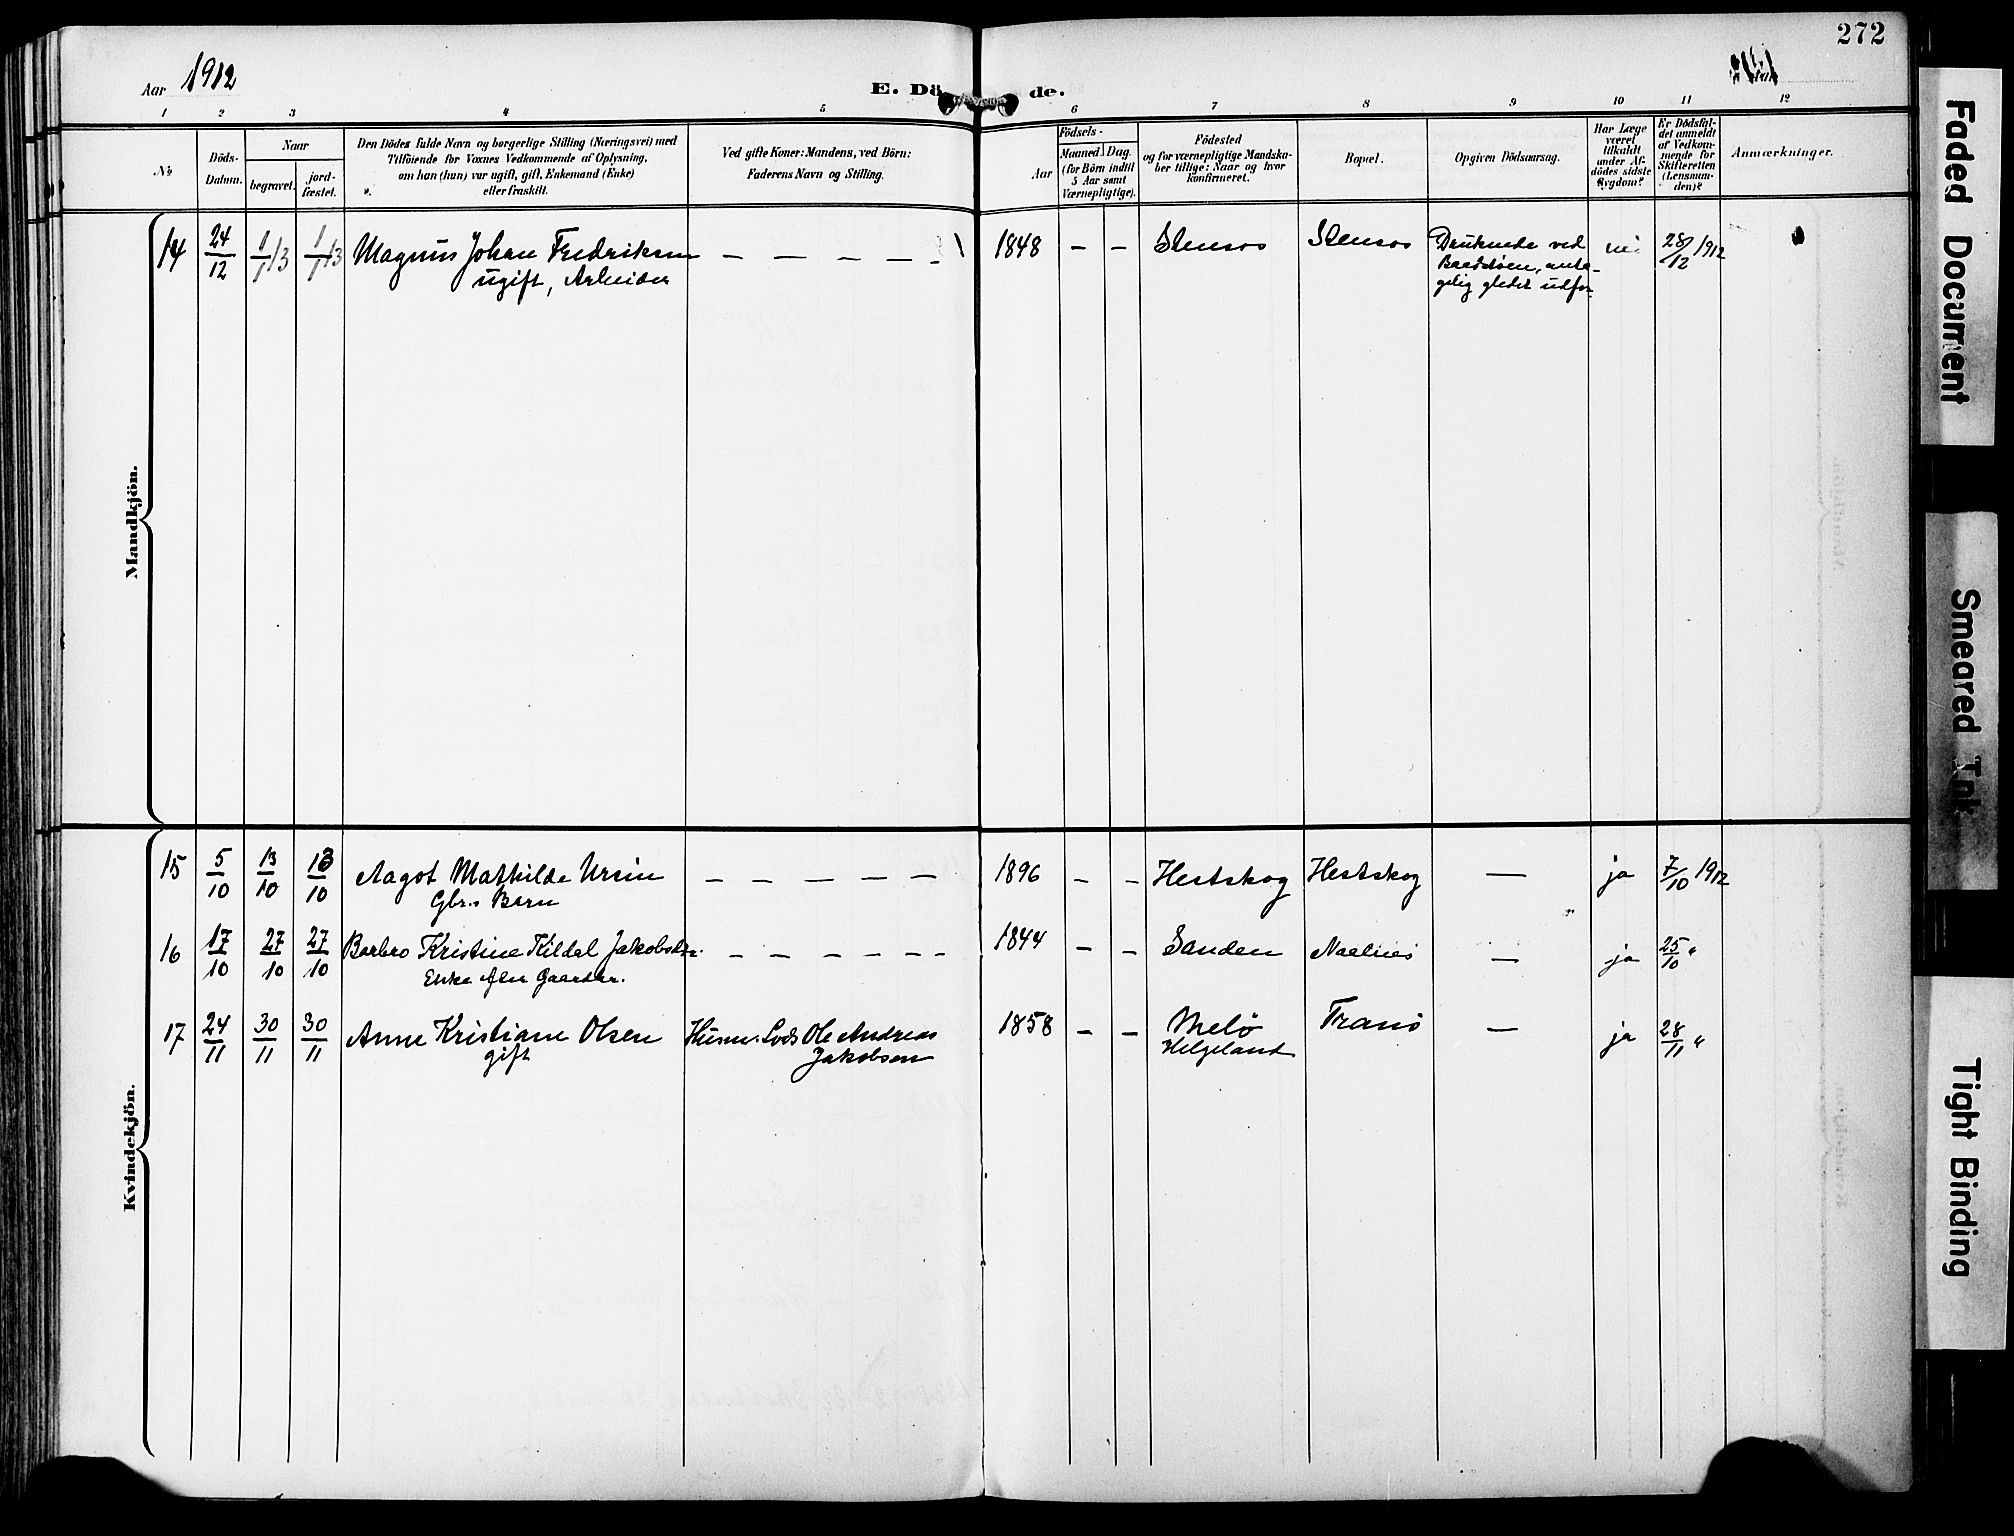 272
Aar 1912
E. Dö de.
1 2 3 4 5 6 7 8 9 10 11 12
No
Döds-
Datum.
Naar
begravet.
jord-
fæstet.
Den Dödes fulde Navn og borgerlige Stilling (Næringsvei) med
Tilföiende for Voxnes Vedkommende af Oplysning,
om han (hun) var ugift, gift, Enkemand (Enke)
eller fraskilt.
Ved gifte Koner: Mandens, ved Börn:
Faderens Navn og Stilling.
Födsels-
Aar
Maaned. Dag.
(for Börn indtil
5 Aar samt
Værnepligtige).
Födested
og for værnepligtige Mandska-
ber tillige: Naar og hvor
konfirmeret.
Bopæl.
Opgiven Dödsaarsag.
Har Læge
været
tilkaldt
under Af-
dödes sidste
Sygdom?
Er Dödsfal-
det anmeldt
af Vedkom-
mende for
Skifteretten
(Lensman-
den)?
Anmærkninger.
Mandkjön.
14 24/12 1/1 13 1/1 13 Magnus Johan Fredriksen — — — — — 1848 — — Stensos Stensos Druknede ved nei 28/12 1912
ugift, Arbeider
gelig gledet udfor
Kvindekjön.
15 5/10 13/10 13/10 Aagot Mathilde Ursin — — — — — 1896 — — Hestskog Hestskog — ja 7/10 1912
Gbr.s Barn
16 17/10 27/10 27/10 Barbro Kristine Kildal Jakobsdr. — — — — — 1844 — — Sanden — ja 25/10 "
Enke efter Gaardbr.
17 24/11 30/11 30/11 Anne Kristiane Olsen Husm. Lods Ole Andreas 1858 — — Melö Tranö — ja 28/11 "
gift Jakobsen Helgeland
Faded Document
Smeared Ink
Tight Binding